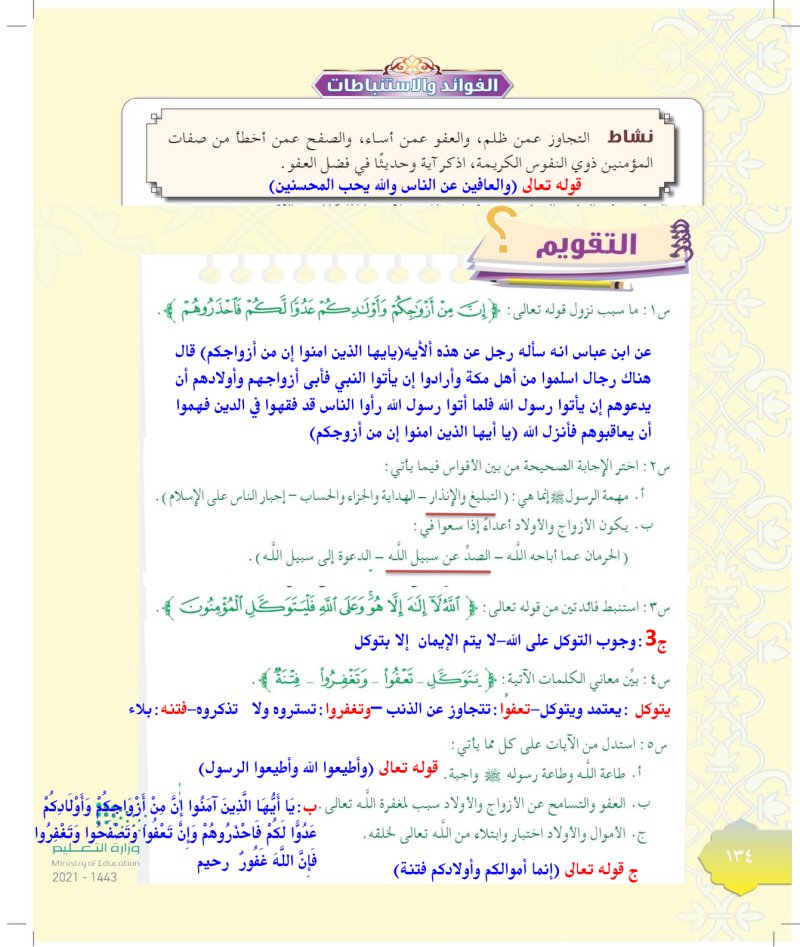 الفوائد والاستنباطات
نشاط التجاوز عمن ظلم، والعفو عمن أساء، والصفح عمن أخطأ من صفات
المؤمنين ذوي النفوس الكريمة، اذكر آية وحديثًا في فضل العفو.
قوله تعالى (والعافين عن الناس والله يحب المحسنين)
التقويم ؟
س١: ما سبب نزول قوله تعالى: ﴿إِنَّ مِنْ أَزْوَاجِكُمْ وَأَوْلَادِكُمْ عَدُوًّا لَّكُمْ فَاحْذَرُوهُمْ﴾.
عن ابن عباس انه سأله رجل عن هذه ألأيه(يايها الذين امنوا إن من أزواجكم) قال
هناك رجال اسلموا من أهل مكة وأرادوا إن يأتوا النبي فأبى أزواجهم وأولادهم أن
يدعوهم إن يأتوا رسول الله فلما أتوا رسول الله رأوا الناس قد فقهوا في الدين فهموا
أن يعاقبوهم فأنزل الله (يا أيها الذين امنوا إن من أزوجكم)
س٢: اختر الإجابة الصحيحة من بين الأقواس فيما يأتي:
أ. مهمة الرسول ﷺ إنما هي: (التبليغ والإنذار – الهداية والجزاء والحساب – إجبار الناس على الإسلام).
ب. يكون الأزواج والأولاد أعداءً إذا سعوا في:
(الحرمان عما أباحه اللَّه – الصدِّ عن سبيل اللَّه – الدعوة إلى سبيل اللَّه).
س٣: استنبط فائدتين من قوله تعالى: ﴿اللَّهُ لَا إِلَٰهَ إِلَّا هُوَ ۚ وَعَلَى اللَّهِ فَلْيَتَوَكَّلِ الْمُؤْمِنُونَ﴾.
ج3:وجوب التوكل على الله–لا يتم الإيمان إلا بتوكل
س٤: بيِّن معاني الكلمات الآتية: ﴿يَتَوَكَّلِ – تَعْفُوا – وَتَغْفِرُوا – فِتْنَةٌ﴾.
يتوكل :يعتمد ويتوكل–تعفوا:تتجاوز عن الذنب –وتغفروا:تستروه ولا تذكروه–فتنه:بلاء
س٥: استدل من الآيات على كل مما يأتي:
أ. طاعة اللَّه وطاعة رسوله ﷺ واجبة. قوله تعالى (وأطيعوا الله وأطيعوا الرسول)
ب. العفو والتسامح عن الأزواج والأولاد سبب لمغفرة اللَّه تعالى. ب:يَا أَيُّهَا الَّذِينَ آمَنُوا إِنَّ مِنْ أَزْوَاجِكُمْ وَأَوْلَادِكُمْ
عَدُوًّا لَكُمْ فَاحْذَرُوهُمْ وَإِنْ تَعْفُوا وَتَصْفَحُوا وَتَغْفِرُوا
فَإِنَّ اللَّهَ غَفُورٌ رحيم
ج. الأموال والأولاد اختبار وابتلاء من اللَّه تعالى لخلقه.
ج قوله تعالى (إنما أموالكم وأولادكم فتنة)
١٣٤
وزارة التعليم
Ministry of Education
2021 - 1443